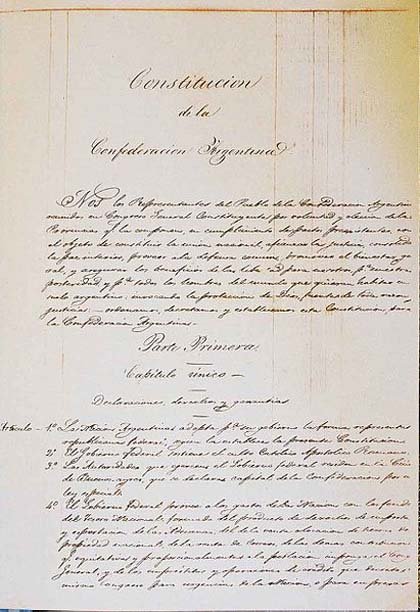 Constitucion
de la
Confederacion Argentina
Nos los Representantes del Pueblo de la Confederacion Argentina
reunidos en Congreso General Constituyente por voluntad y eleccion de las
Provincias q.e la componen, en cumplimiento de pactos preexistentes, con
el objeto de constituir la union nacional, afianzar la justicia, consolidar
la paz interior, proveer a la defensa comun, promover el bienestar gene
ral, y asegurar los beneficios de la libertad para nosotros p.a nuestra
posteridad y p.a todos los hombres del mundo que quieran habitar en
suelo argentino: invocando la proteccion de Dios, fuente de toda razon y
justicia: ordenamos, decretamos y establecemos esta Constitucion, para
la Confederacion Argentina.
Parte Primera
Capitulo único
Declaraciones, derechos y garantias
Articulo 1.o La Nacion Argentina adopta p.a su gobierno la forma representativa
republicana federal, segun la establece la presente Constitucion
2.o El Gobierno Federal sostiene el culto Catolico Apostolico Romano
3.o Las Autoridades que ejercen el Gobierno federal residen en la Ciudad
de Buenos Ayres, que se declara capital de la Confederacion por una
ley especial.
4.o El Gobierno Federal provee a los gastos de la Nacion con los fondos
del Tesoro Nacional, formado del producto de derechos de import.
y esportacion de las Aduanas, del de la venta o locacion de tierras de
propiedad nacional, de la renta de Correos, de las demas contribuciones
q.e equitativa y proporcionalmente a la poblacion imponga el Congreso
General, y de los emprestitos y operaciones de credito que decrete el
mismo Congreso para urgencias de la Nacion, o para empresas